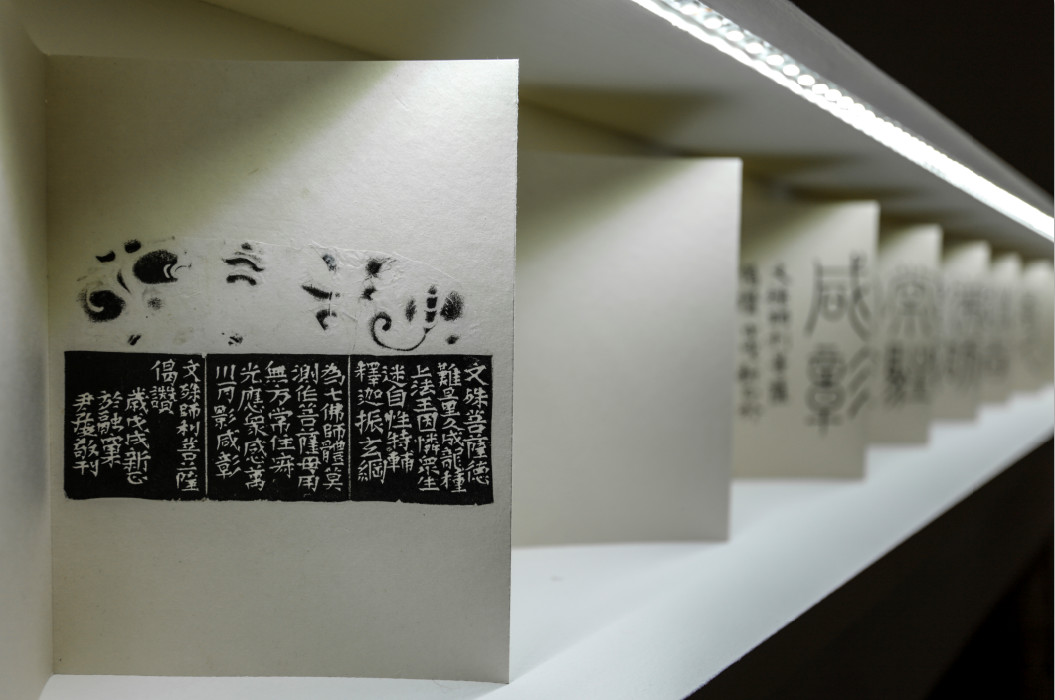 文殊菩薩德
難量久成龍種
上法王因憐衆生
迷自性特輔
釋迦振玄綱
為七佛師體莫
測作菩薩母用
無方常住寂
光應衆感萬
川一月影咸彰
文殊師利菩薩
偈讚
歲戊戌新正
於融窠
敬刊
咸彰
文殊師利菩薩